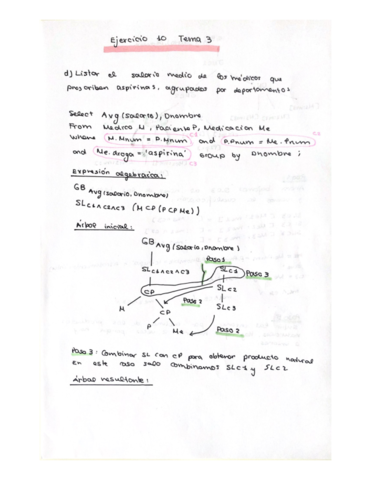 Ejercicio 10 Tema 3
d) Listar el salario medio de los médicos que
prescriban aspirinas, agrupados por departamentos
Select Avg (Salario), Dnombre
From Medico M, Paciente P, Medicacion Me
Where M.Mnum = P.Mnum and P.Pnum = Me.Pnum
and Me.droga = 'aspirina' Group by Dnombre ;
Expresión algebraica:
GB Avg (Salario, Dnombre)
SL C1∧C2∧C3 (M CP (P CP Me))
Árbol inicial:
GB Avg (Salario, Dnombre)
Paso 1
SL C1∧C2∧C3
SLC1
Paso 3
CP
SLC2
M
CP
Paso 2
SLC3
P
Me
Paso 2
Paso 3: Combinar SL con CP para obtener producto natural
en este caso solo combinamos SLC1 y SLC2
Árbol resultante: